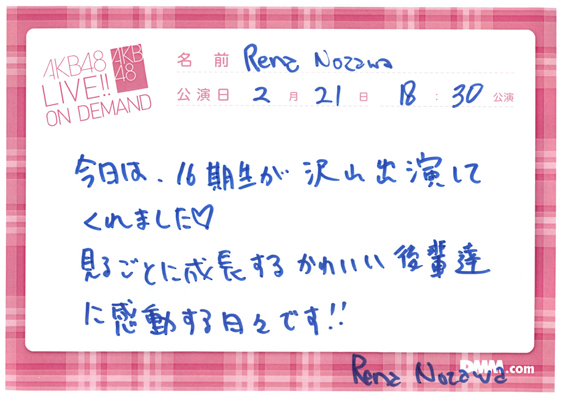 AKB48
LIVE!!
ON DEMAND
AKB
48
名前 Rena Nozawa
公演日 2月21日 18:30公演
今日は、16期生が沢山出演して
くれました♡
見るごとに成長するかわいい後輩達
に感動する日々です!!
Rena Nozawa
DMM.com